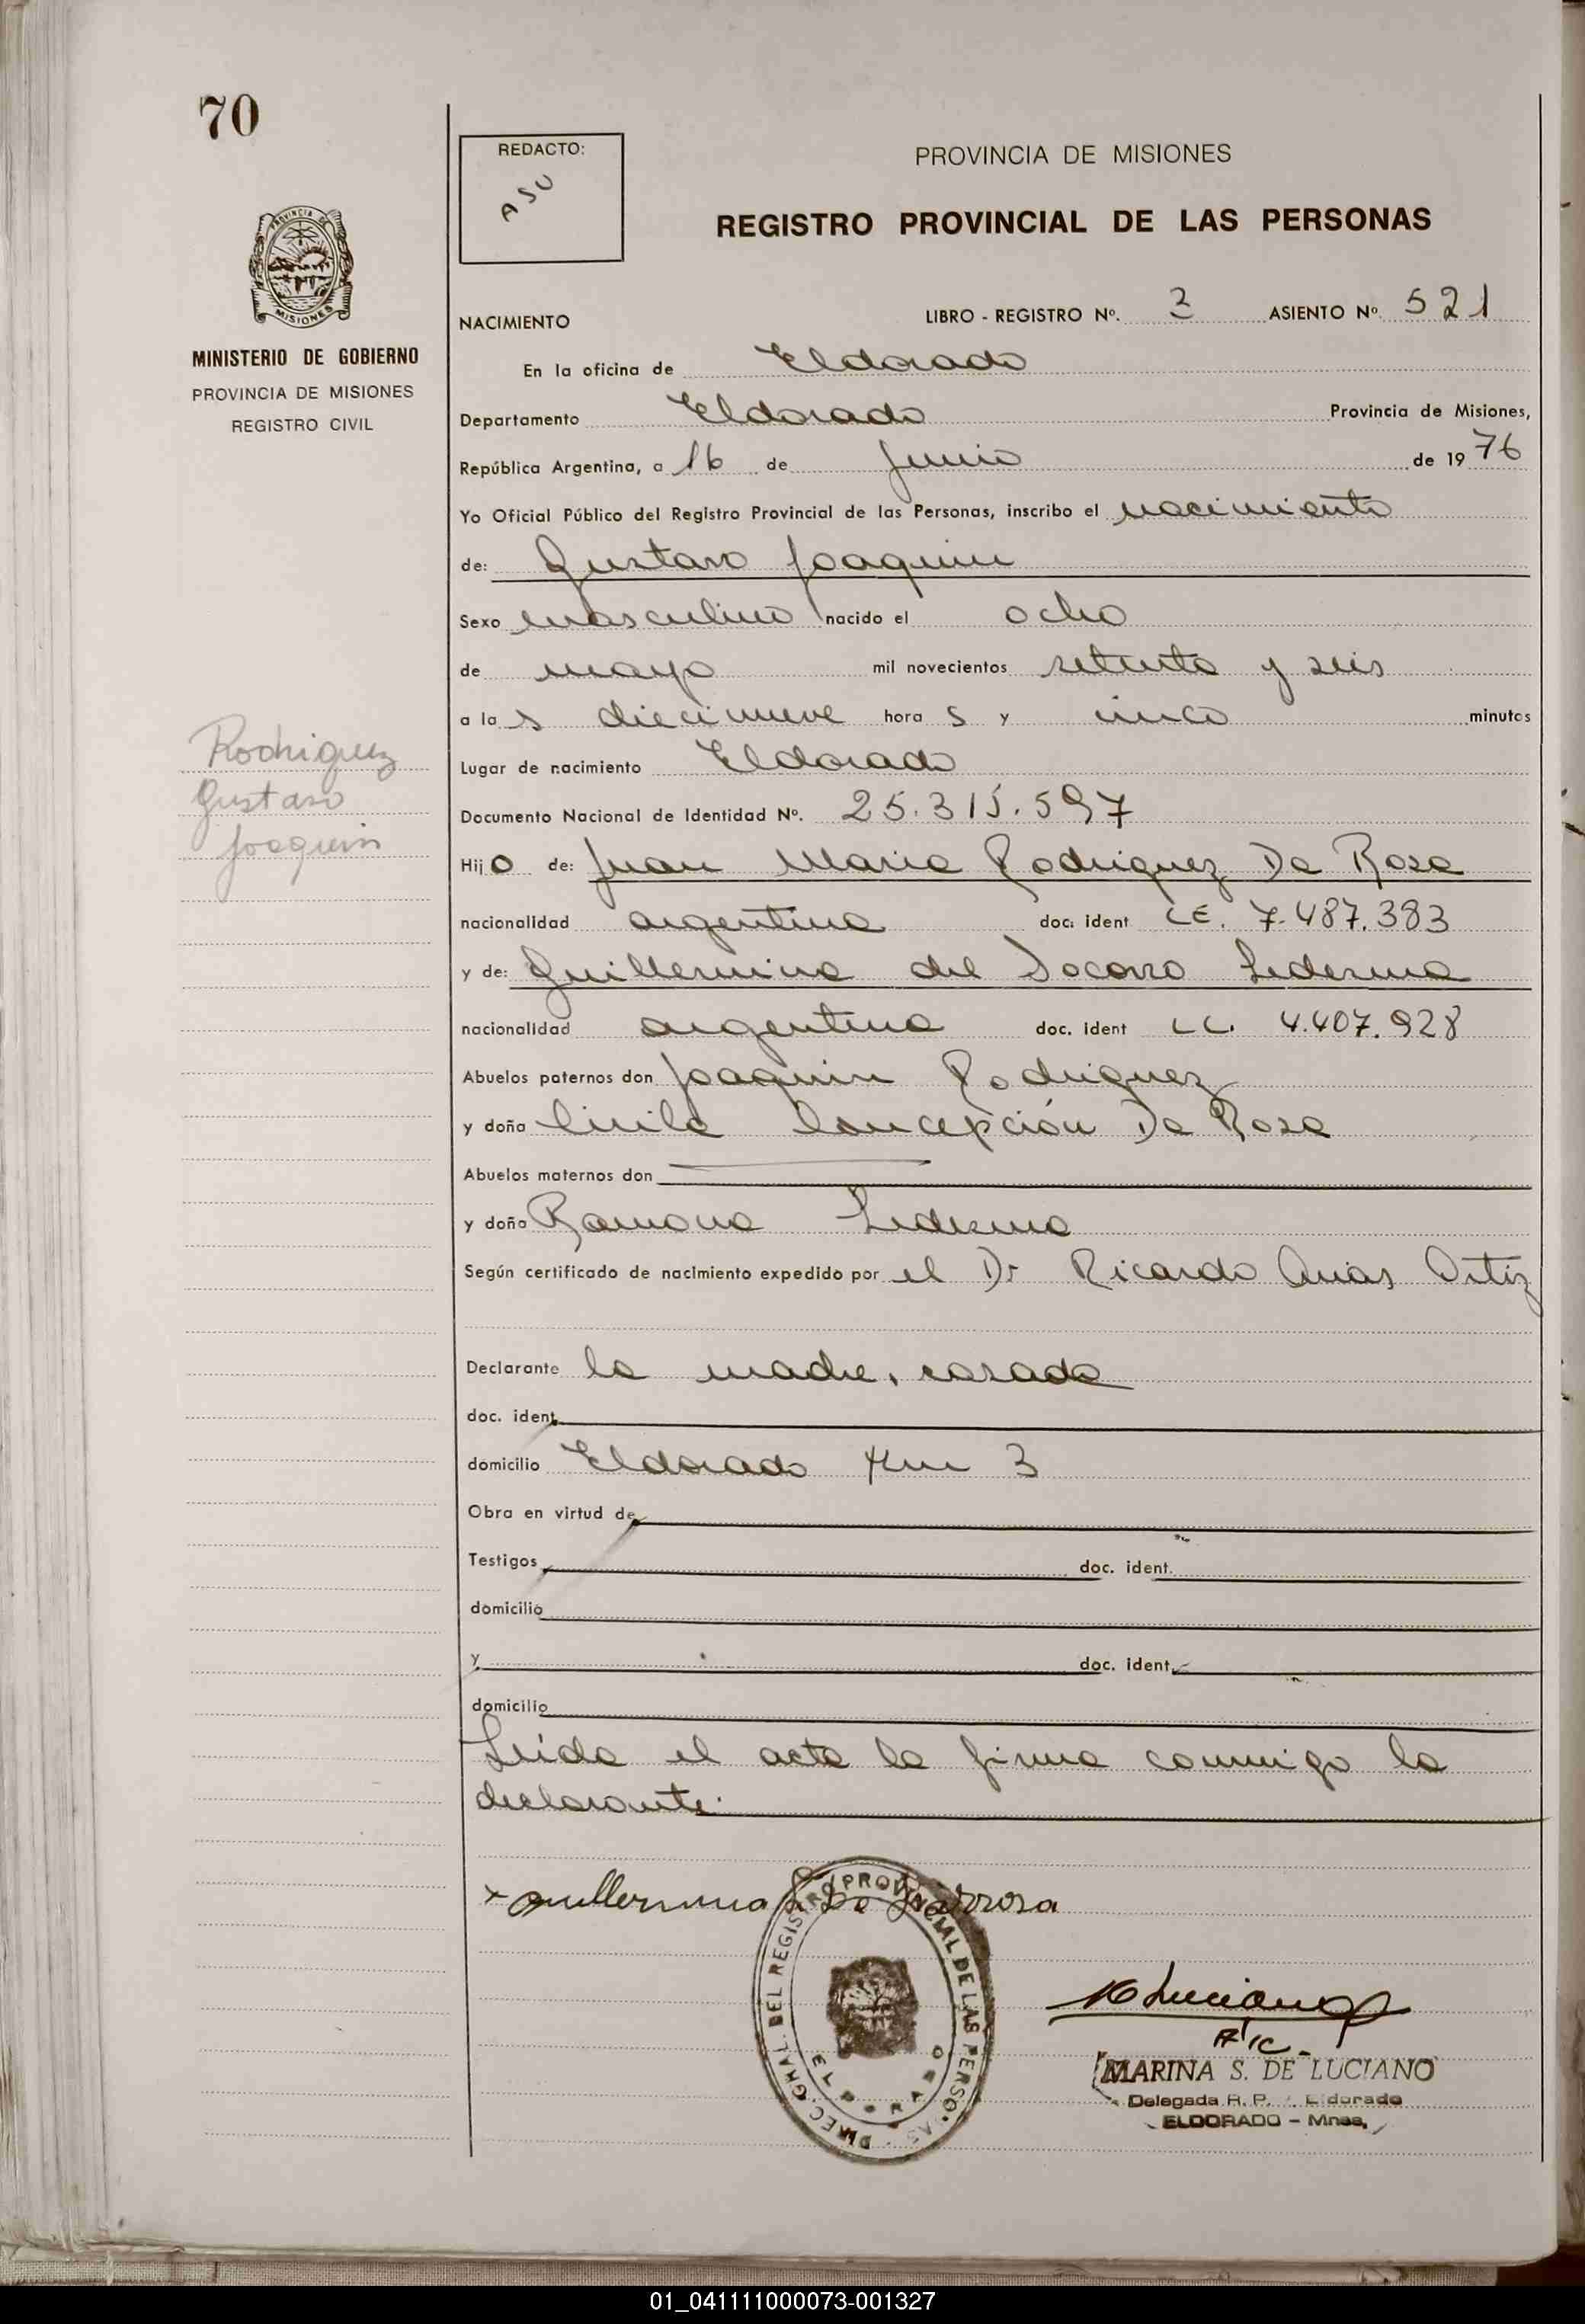 70
REDACTO:
ASU
PROVINCIA DE MISIONES
REGISTRO PROVINCIAL DE LAS PERSONAS
PROVINCIA DE
MISIONES
MINISTERIO DE GOBIERNO
PROVINCIA DE MISIONES
REGISTRO CIVIL
NACIMIENTO LIBRO - REGISTRO Nº. 3 ASIENTO Nº. 521
En la oficina de Eldorado
Departamento Eldorado Provincia de Misiones,
República Argentina, a 16 de Junio de 1976
Yo Oficial Público del Registro Provincial de las Personas, inscribo el nacimiento
de: Gustavo Joaquin
Sexo masculino nacido el ocho
de mayo mil novecientos setenta y seis
a las diecinueve horas y cinco minutos
Lugar de nacimiento Eldorado
Documento Nacional de Identidad Nº. 25.315.597
Rodriguez
Gustavo
Joaquin
Hijo de: Juan Maria Rodriguez Da Rosa
nacionalidad argentina doc. ident LE. 7.487.383
y de: Guillermina del Socorro Ledesma
nacionalidad argentina doc. ident LC. 4.407.928
Abuelos paternos don Joaquin Rodriguez
y doña Cirila Concepción Da Rosa
Abuelos maternos don
y doña Ramona Ledesma
Según certificado de nacimiento expedido por el Dr Ricardo Arias Ortiz
Declarante la madre, casada
doc. ident.
domicilio Eldorado Km 3
Obra en virtud de
Testigos doc. ident.
domicilio
y doc. ident.
domicilio
Leida el acta la firma conmigo la
declarante.
x Guillermina
DIREC. GRAL. DEL REGISTRO PROVINCIAL DE LAS PERSONAS
ELDORADO
MARINA S. DE LUCIANO
Delegada R. P. Eldorado
ELDORADO - Mnes.
01_041111000073-001327